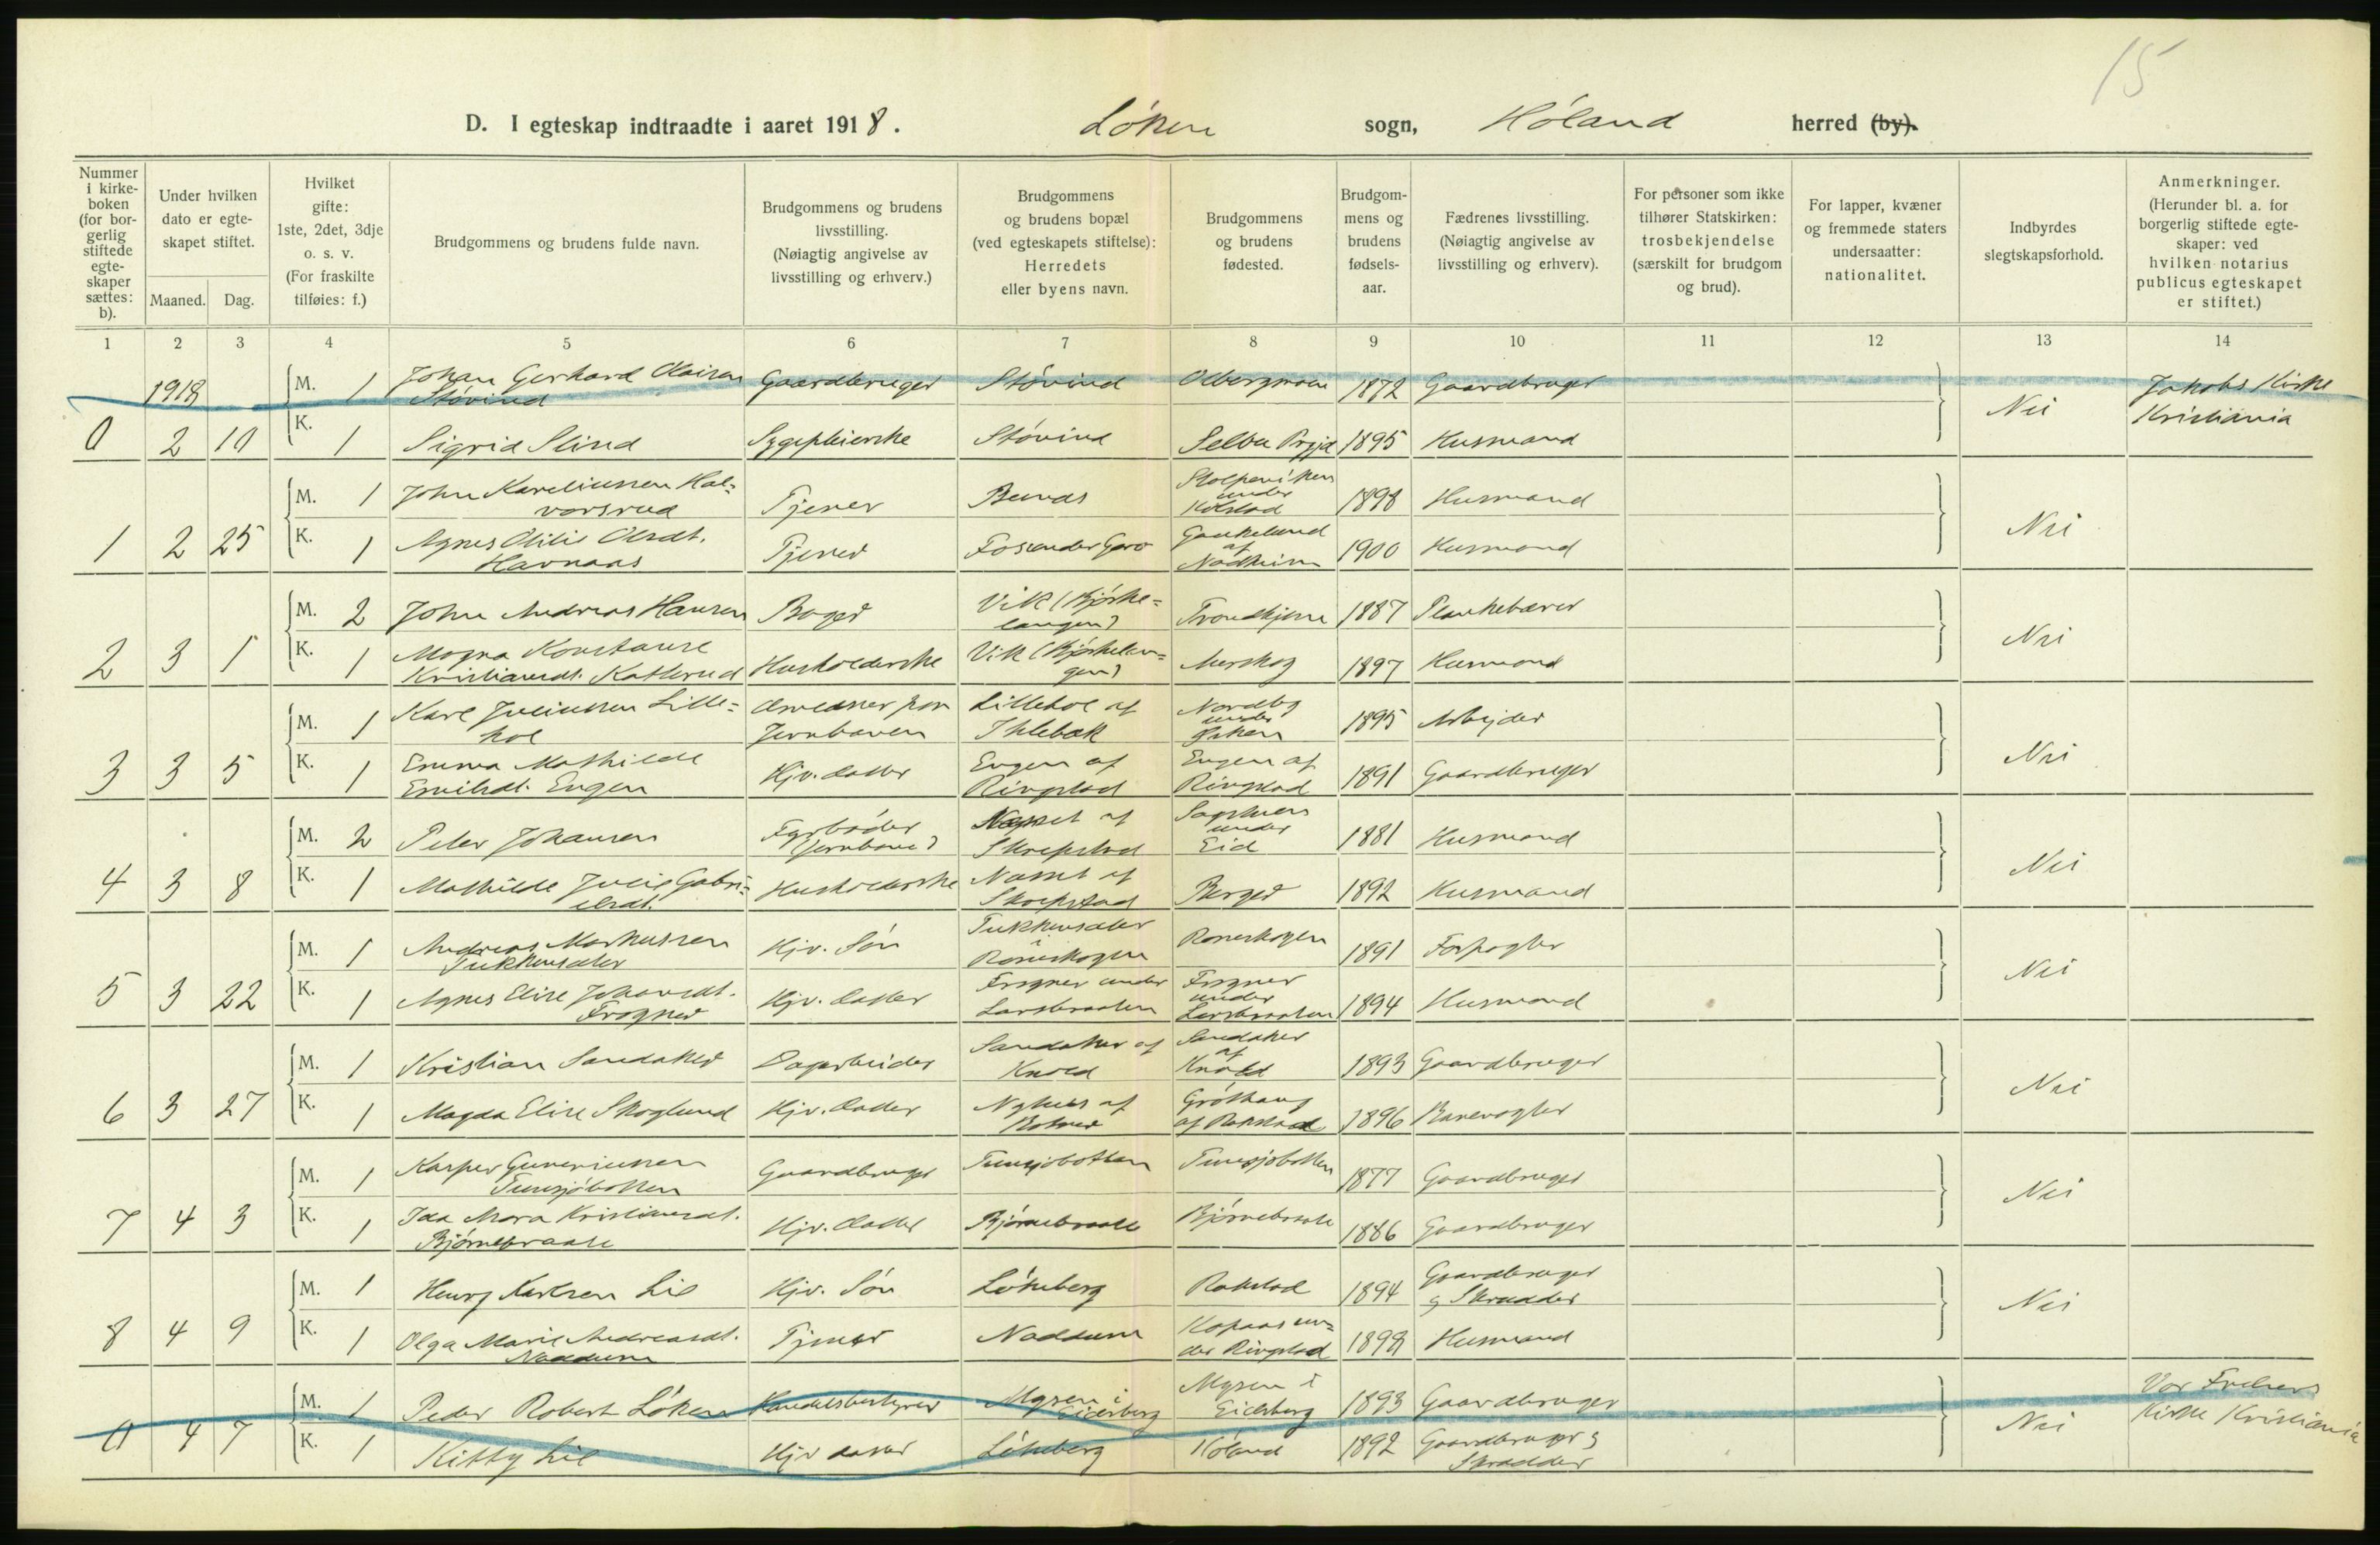 15
D. I egteskap indtraadte i aaret 1918. Løken sogn, Høland herred (by).
Nummer i kirkeboken (for borgerlig stiftede egteskaper sættes: b).
Under hvilken dato er egteskapet stiftet.
Maaned. Dag.
Hvilket gifte: 1ste, 2det, 3dje o. s. v. (For fraskilte tilføies: f.)
Brudgommens og brudens fulde navn.
Brudgommens og brudens livsstilling. (Nøiagtig angivelse av livsstilling og erhverv.)
Brudgommens og brudens bopæl (ved egteskapets stiftelse): Herredets eller byens navn.
Brudgommens og brudens fødested.
Brudgommens og brudens fødselsaar.
Fædrenes livsstilling. (Nøiagtig angivelse av livsstilling og erhverv).
For personer som ikke tilhører Statskirken: trosbekjendelse (særskilt for brudgom og brud).
For lapper, kvæner og fremmede staters undersaatter: nationalitet.
Indbyrdes slegtskapsforhold.
Anmerkninger. (Herunder bl. a. for borgerlig stiftede egteskaper: ved hvilken notarius publicus egteskapet er stiftet.)
1 2 3 4 5 6 7 8 9 10 11 12 13 14
1918 M. 1 Johan Gerhard Støvind Gaardbruger Støvind 1872 Gaardbruger Nei Jakobs Kirke Kristiania
0 2 10 K. 1 Sigrid Slind Sygepleierske Støvind Selbu Prgjd 1895 Husmand
M. 1 John Kareliussen Halvorsrud Tjener Bunds under Kolstad 1898 Husmand Nei
1 2 25 K. 1 Agnes Olsdt. Havnaas Tjener Fosender 1900 Husmand
M. 2 John Andreas Hansen Bager Vik (Bjørkelangen) Trondhjem 1887 Plankebærer Nei
2 3 1 K. 1 Magna Konstanse Kristiansdt. Katterud Husholderske Vik (Bjørkelangen) Aurskog 1897 Husmand
M. 1 Karl Juliussen Lillehol Jernbanen Lillehol af Ihlebæk Nordby under 1895 Arbejder Nei
3 3 5 K. 1 Emma Mathilde Emilsdt. Engen Hjv. datter Engen af Ringstad Engen af Ringstad 1891 Gaardbruger
M. 2 Peter Johansen Fyrbøder (Jernbane) Næsset af Skrepstad Sagstuen under Eid 1881 Husmand Nei
4 3 8 K. 1 Mathilde Julie Gabrielsdt. Husholderske Næsset af Skrepstad Berger 1892 Husmand
M. 1 Andreas Markussen Tukkensæter Hjv. Søn Tukkensæter i Rømskogen Rømskogen 1891 Forpagter Nei
5 3 22 K. 1 Agnes Elise Johansdt. Frogner Hjv. datter Frogner under Larsbraaten Frogner under Larsbraaten 1894 Husmand
M. 1 Kristian Sandaker Dagarbeider Sandaker af Knold Sandaker af Knold 1893 Gaardbruger Nei
6 3 27 K. 1 Magda Elise Skoglund Hjv. datter Nyhus af Botner Grøthaug af Rakstad 1896 Banevogter
M. 1 Kasper Guneriussen Tunsjøbotten Gaardbruger Tunsjøbotten Tunsjøbotten 1877 Gaardbruger Nei
7 4 3 K. 1 Ida Mara Kristiansdt. Bjørnebraate Hjv. datter Bjørnebraate Bjørnebraate 1886 Gaardbruger
M. 1 Henry Karlsen Lie Hjv. Søn Løkeberg Rakstad 1894 Gaardbruger og Skrædder Nei
8 4 9 K. 1 Olga Marie Andreasdt. Naddum Tjener Naddum Kopaas under Ringstad 1898 Husmand
M. 1 Peder Robert Løken Handelsbestyrer Mysen i Eidsberg Mysen i Eidsberg 1893 Gaardbruger Nei Vor Frelsers Kirke Kristiania
0 4 7 K. 1 Kitty Lie Hjv datter Løkeberg Høland 1892 Gaardbruger og Skrædder